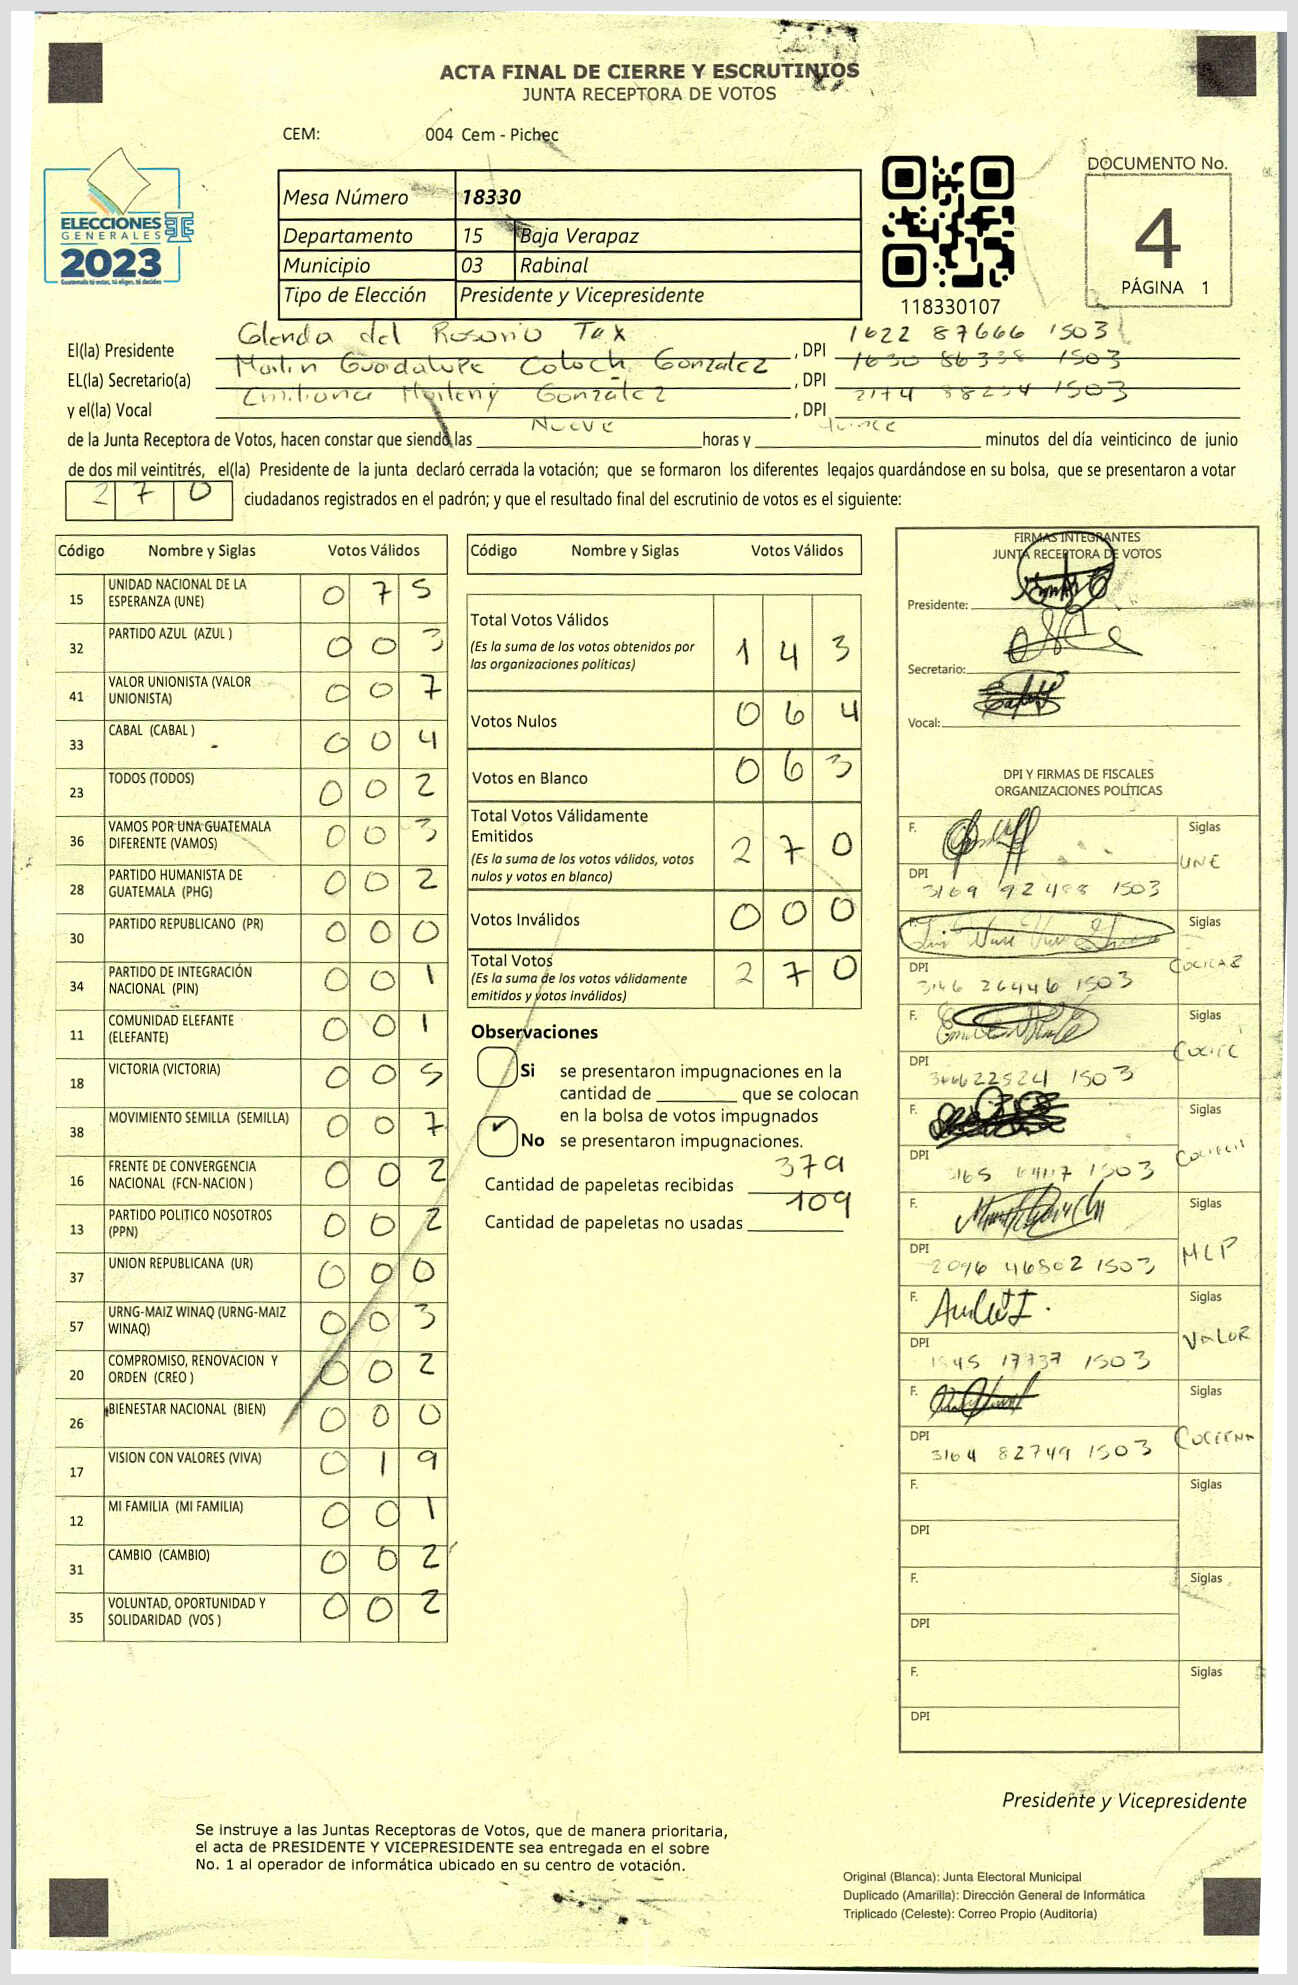 ACTA FINAL DE CIERRE Y ESCRUTINIOS
JUNTA RECEPTORA DE VOTOS
CEM: 004 Cem - Pichec
ELECCIONES
GENERALES
2023
Guatemala tú votas, tú eliges, tú decides
Mesa Número 18330
Departamento 15 Baja Verapaz
Municipio 03 Rabinal
Tipo de Elección Presidente y Vicepresidente
118330107
DOCUMENTO No.
4
PÁGINA 1
El(la) Presidente Glenda del Rosario Tax, DPI 1622 87666 1503
EL(la) Secretario(a) Marlin Guadalupe Coloch Gonzalez, DPI 1630 86338 1503
y el(la) Vocal Emiliana Marleny Gonzalez, DPI 2174 88254 1503
de la Junta Receptora de Votos, hacen constar que siendo las Nueve horas y minutos del día veinticinco de junio
de dos mil veintitrés, el(la) Presidente de la junta declaró cerrada la votación; que se formaron los diferentes legajos guardándose en su bolsa, que se presentaron a votar
270 ciudadanos registrados en el padrón; y que el resultado final del escrutinio de votos es el siguiente:
Código Nombre y Siglas Votos Válidos
15 UNIDAD NACIONAL DE LA ESPERANZA (UNE) 0 7 5
32 PARTIDO AZUL (AZUL ) 0 0 3
41 VALOR UNIONISTA (VALOR UNIONISTA) 0 0 7
33 CABAL (CABAL ) 0 0 4
23 TODOS (TODOS) 0 0 2
36 VAMOS POR UNA GUATEMALA DIFERENTE (VAMOS) 0 0 3
28 PARTIDO HUMANISTA DE GUATEMALA (PHG) 0 0 2
30 PARTIDO REPUBLICANO (PR) 0 0 0
34 PARTIDO DE INTEGRACIÓN NACIONAL (PIN) 0 0 1
11 COMUNIDAD ELEFANTE (ELEFANTE) 0 0 1
18 VICTORIA (VICTORIA) 0 0 5
38 MOVIMIENTO SEMILLA (SEMILLA) 0 0 7
16 FRENTE DE CONVERGENCIA NACIONAL (FCN-NACION ) 0 0 2
13 PARTIDO POLITICO NOSOTROS (PPN) 0 0 2
37 UNION REPUBLICANA (UR) 0 0 0
57 URNG-MAIZ WINAQ (URNG-MAIZ WINAQ) 0 0 3
20 COMPROMISO, RENOVACION Y ORDEN (CREO ) 0 0 2
26 BIENESTAR NACIONAL (BIEN) 0 0 0
17 VISION CON VALORES (VIVA) 0 1 9
12 MI FAMILIA (MI FAMILIA) 0 0 1
31 CAMBIO (CAMBIO) 0 0 2
35 VOLUNTAD, OPORTUNIDAD Y SOLIDARIDAD (VOS ) 0 0 2
Código Nombre y Siglas Votos Válidos
Total Votos Válidos 1 4 3
(Es la suma de los votos obtenidos por
las organizaciones políticas)
Votos Nulos 0 6 4
Votos en Blanco 0 6 3
Total Votos Válidamente
Emitidos 2 7 0
(Es la suma de los votos válidos, votos
nulos y votos en blanco)
Votos Inválidos 0 0 0
Total Votos 2 7 0
(Es la suma de los votos válidamente
emitidos y votos inválidos)
Observaciones
Si se presentaron impugnaciones en la
cantidad de ________ que se colocan
en la bolsa de votos impugnados
No se presentaron impugnaciones.
Cantidad de papeletas recibidas 379
Cantidad de papeletas no usadas 109
FIRMAS INTEGRANTES
JUNTA RECEPTORA DE VOTOS
Presidente:
Secretario:
Vocal:
DPI Y FIRMAS DE FISCALES
ORGANIZACIONES POLÍTICAS
F. Siglas UNE
DPI 3169 92488 1503
F. Siglas
DPI 3146 26446 1503
F. Siglas
DPI 3466 22524 1503
F. Siglas
DPI 1503
F. Siglas MLP
DPI 2096 46802 1503
F. Siglas VALOR
DPI 17737 1503
F. Siglas
DPI 3164 82749 1503
F. Siglas
DPI
F. Siglas
DPI
F. Siglas
DPI
Presidente y Vicepresidente
Se instruye a las Juntas Receptoras de Votos, que de manera prioritaria,
el acta de PRESIDENTE Y VICEPRESIDENTE sea entregada en el sobre
No. 1 al operador de informática ubicado en su centro de votación.
Original (Blanca): Junta Electoral Municipal
Duplicado (Amarilla): Dirección General de Informática
Triplicado (Celeste): Correo Propio (Auditoría)